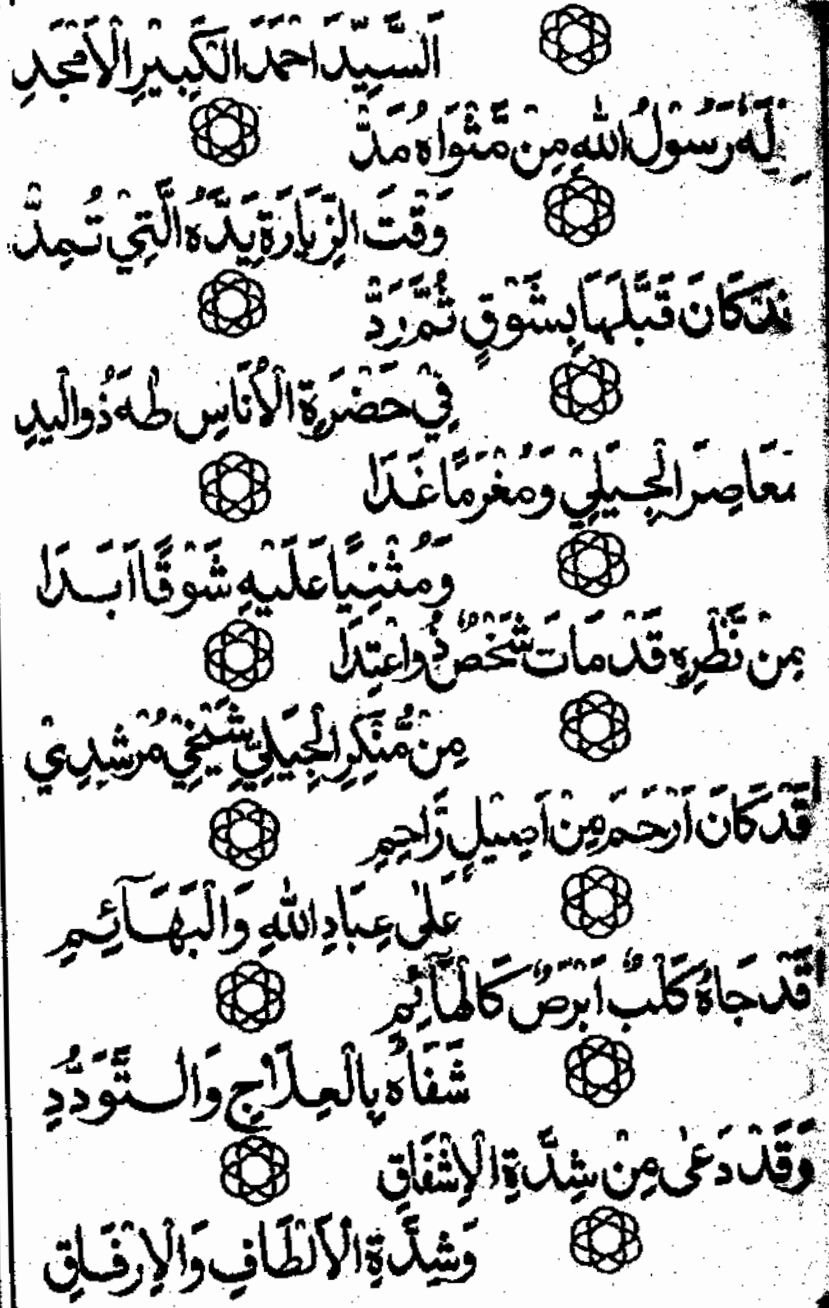 اَلسَّيِّدِ اَحْمَدَ الْكَبِيْرِ الْاَمْجَدِ
لَهُ رَسُوْلُ اللهِ مِنْ مَّثْوَاهُ مَدّْ
وَقْتَ الزِّيَارَةِ يَدَّهُ الَّتِيْ تُمِدّْ
كَانَ قَبَّلَهَا بِشَوْقٍ ثُمَّ رَدّْ
فِيْ حَضْرَةِ الْاُنَاسِ طٰهَ ذُو الْيَدِ
مَعَاصِرَ الْجِيْلِيْ وَمُغْرَمًا غَدَا
وَمُثْنِيًا عَلَيْهِ شَوْقًا اَبَدَا
مِنْ نَّظْرِهِ قَدْ مَاتَ شَخْصٌ ذُو اعْتِدَا
مِنْ مُّنْكِرِ الْجِيَلِيِّ شَيْخِيْ مُرْشِدِيْ
قَدْ كَانَ اَرْحَمَ مِنْ اَصِيْلٍ رَّاحِمِ
عَلٰى عِبَادِ اللهِ وَالْبَهَآئِمِ
قَدْ جَاهُ كَلْبٌ اَبْرَصٌ كَالْهَآئِمِ
شَفَاهُ بِالْعِلَاجِ وَالتَّوَدُّدِ
وَقَدْ دَعٰى مِنْ شِدَّةِ الْاِشْفَاقِ
وَشِدَّةِ الْاَلْطَافِ وَالْاِرْفَاقِ